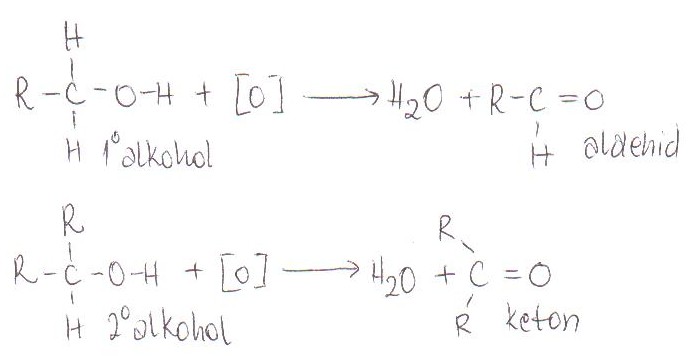 H
R-C-O-H + [O] ⟶ H2O + R-C=O
H 1° alkohol H aldehid
R
R
R-C-O-H + [O] ⟶ H2O + C=O
H 2° alkohol R keton